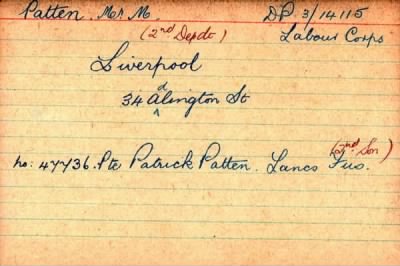 Patten. Mr M. DP. 3/14115
(2nd Depdt) Labour Corps
Liverpool
34 Adlington St
(2nd Son)
No: 47736. Pte Patrick Patten. Lancs Fus.